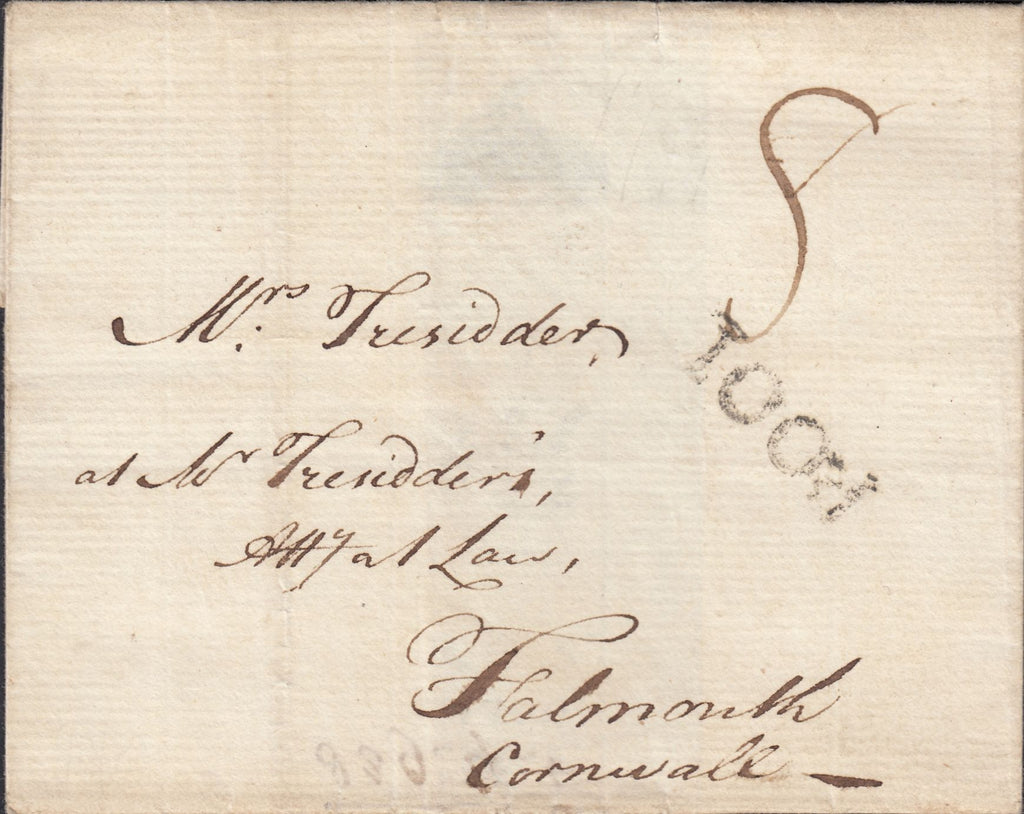 8
Mrs. Tresidder,
LOOE
at Mr Tresidder's,
Atty at Law,
Falmouth
Cornwall —